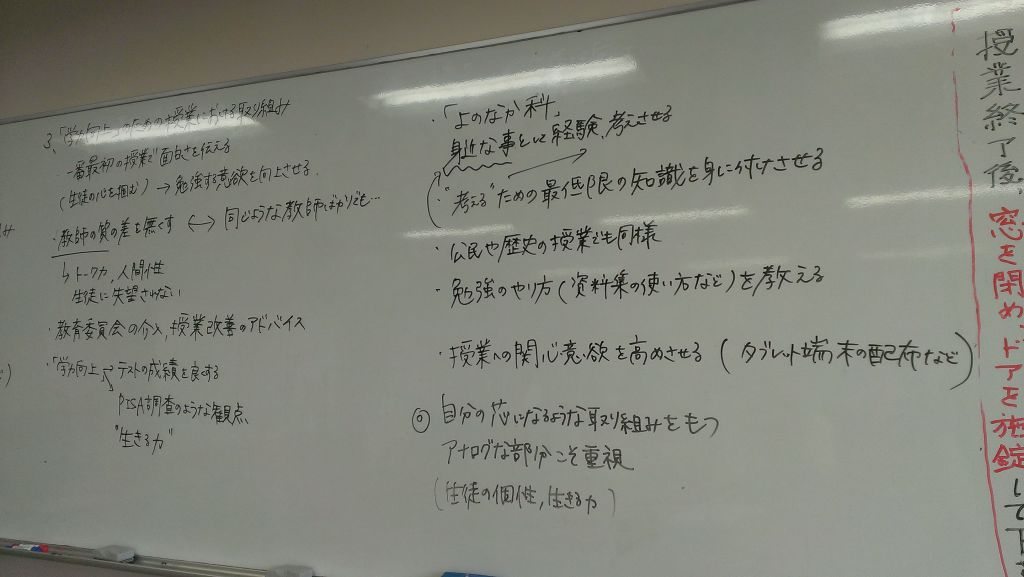 3、「学力向上」のための授業における取り組み
一番最初の授業で面白さを伝える
(生徒の心を掴む) → 勉強する意欲を向上させる
・教師の質の差を無くす ↔ 同じような教師ばかりでも…
↳ トーク力、人間性
生徒に失望されない
・教育委員会の介入、授業改善のアドバイス
・「学力向上 → テストの成績を良する
PISA調査のような観点、
"生きる力"
・「よのなか科」
身近な事として経験、考えさせる
"考える"ための最低限の知識を身に付けさせる
・公民や歴史の授業でも同様
・勉強のやり方(資料集の使い方など)を教える
・授業への関心意欲を高めさせる (タブレット端末の配布など)
◎ 自分の芯になるような取り組みをもつ
アナログな部分こそ重視
(生徒の個性、生きる力)
授業終了後、窓を閉め、ドアを施錠して下